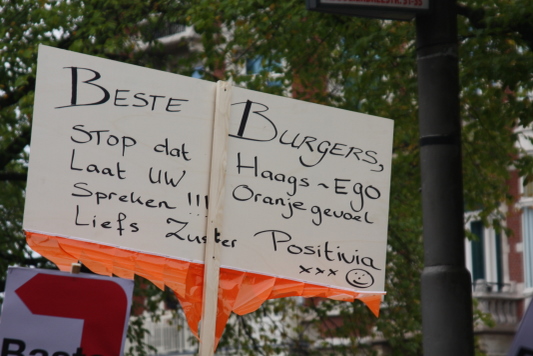 Beste Burgers,
Stop dat Haags~Ego
Laat uw Oranjegevoel
Spreken !!!
Liefs Zuster Positivia
xxx ☺